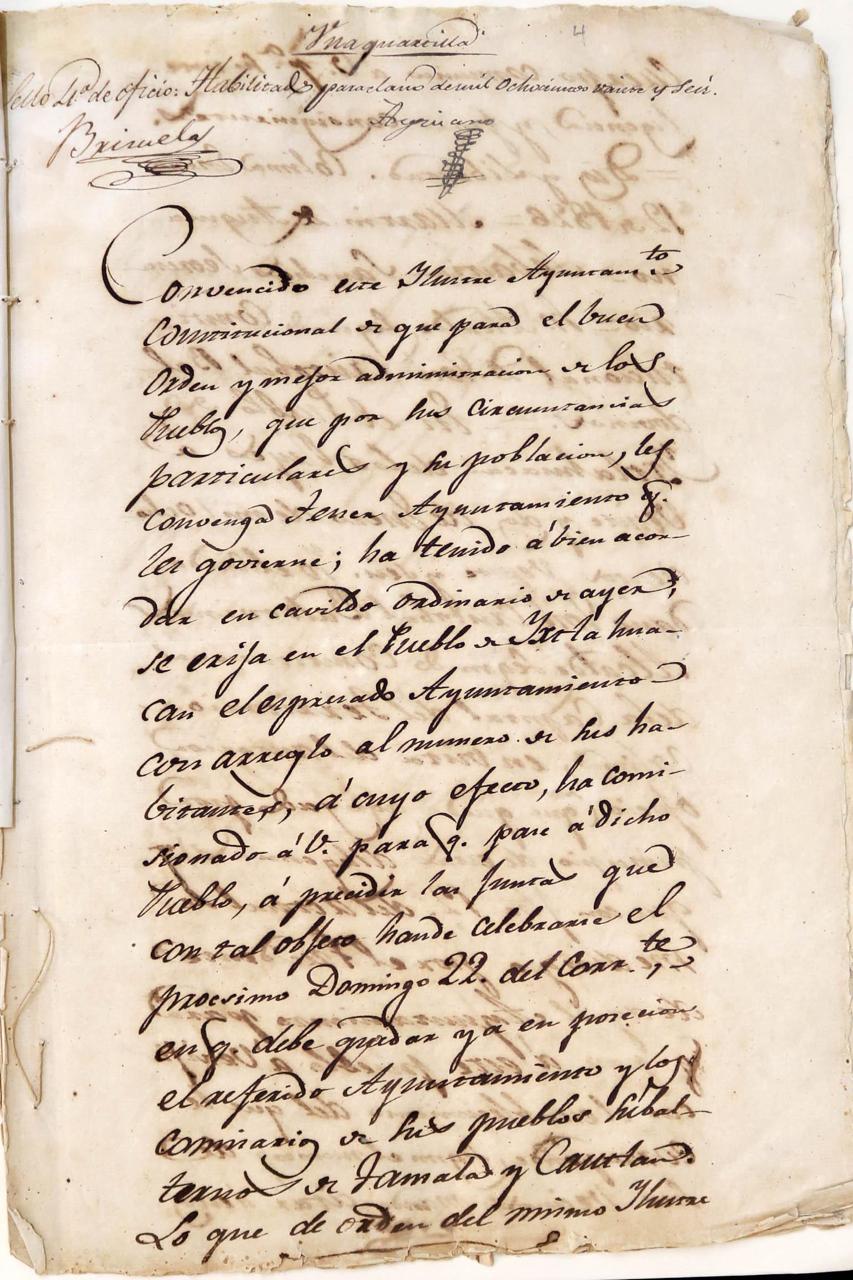 Vna quartilla 4
Sello 4º de oficio: Habilitado para el año de mil Ochocientos veinte y seis.
Brizuela
Convencido este Ylustre Ayuntamto
Constitucional de que para el buen
Orden y mejor administracion de los
Pueblos, que por sus circunstancias
particulares y su poblacion, les
convenga tener Ayuntamiento q.
les govierne; ha tenido á bien acor-
dar en cavildo ordinario de ayer,
se erija en el Pueblo de Yxtlahua-
can el espresado Ayuntamiento
con arreglo al numero de sus ha-
bitantes, á cuyo efecto, ha comi-
sionado á V. para q. pase á dicho
Pueblo, á precidir las Juntas que
con tal objeto hande celebrarse el
procsimo Domingo 22. del Corr.te,
en q. debe quedar ya en posecion
el referido Ayuntamiento y los
comisarios de sus pueblos subal-
ternos de Tamala y Cautlan.
Lo que de orden del mismo Ylustre